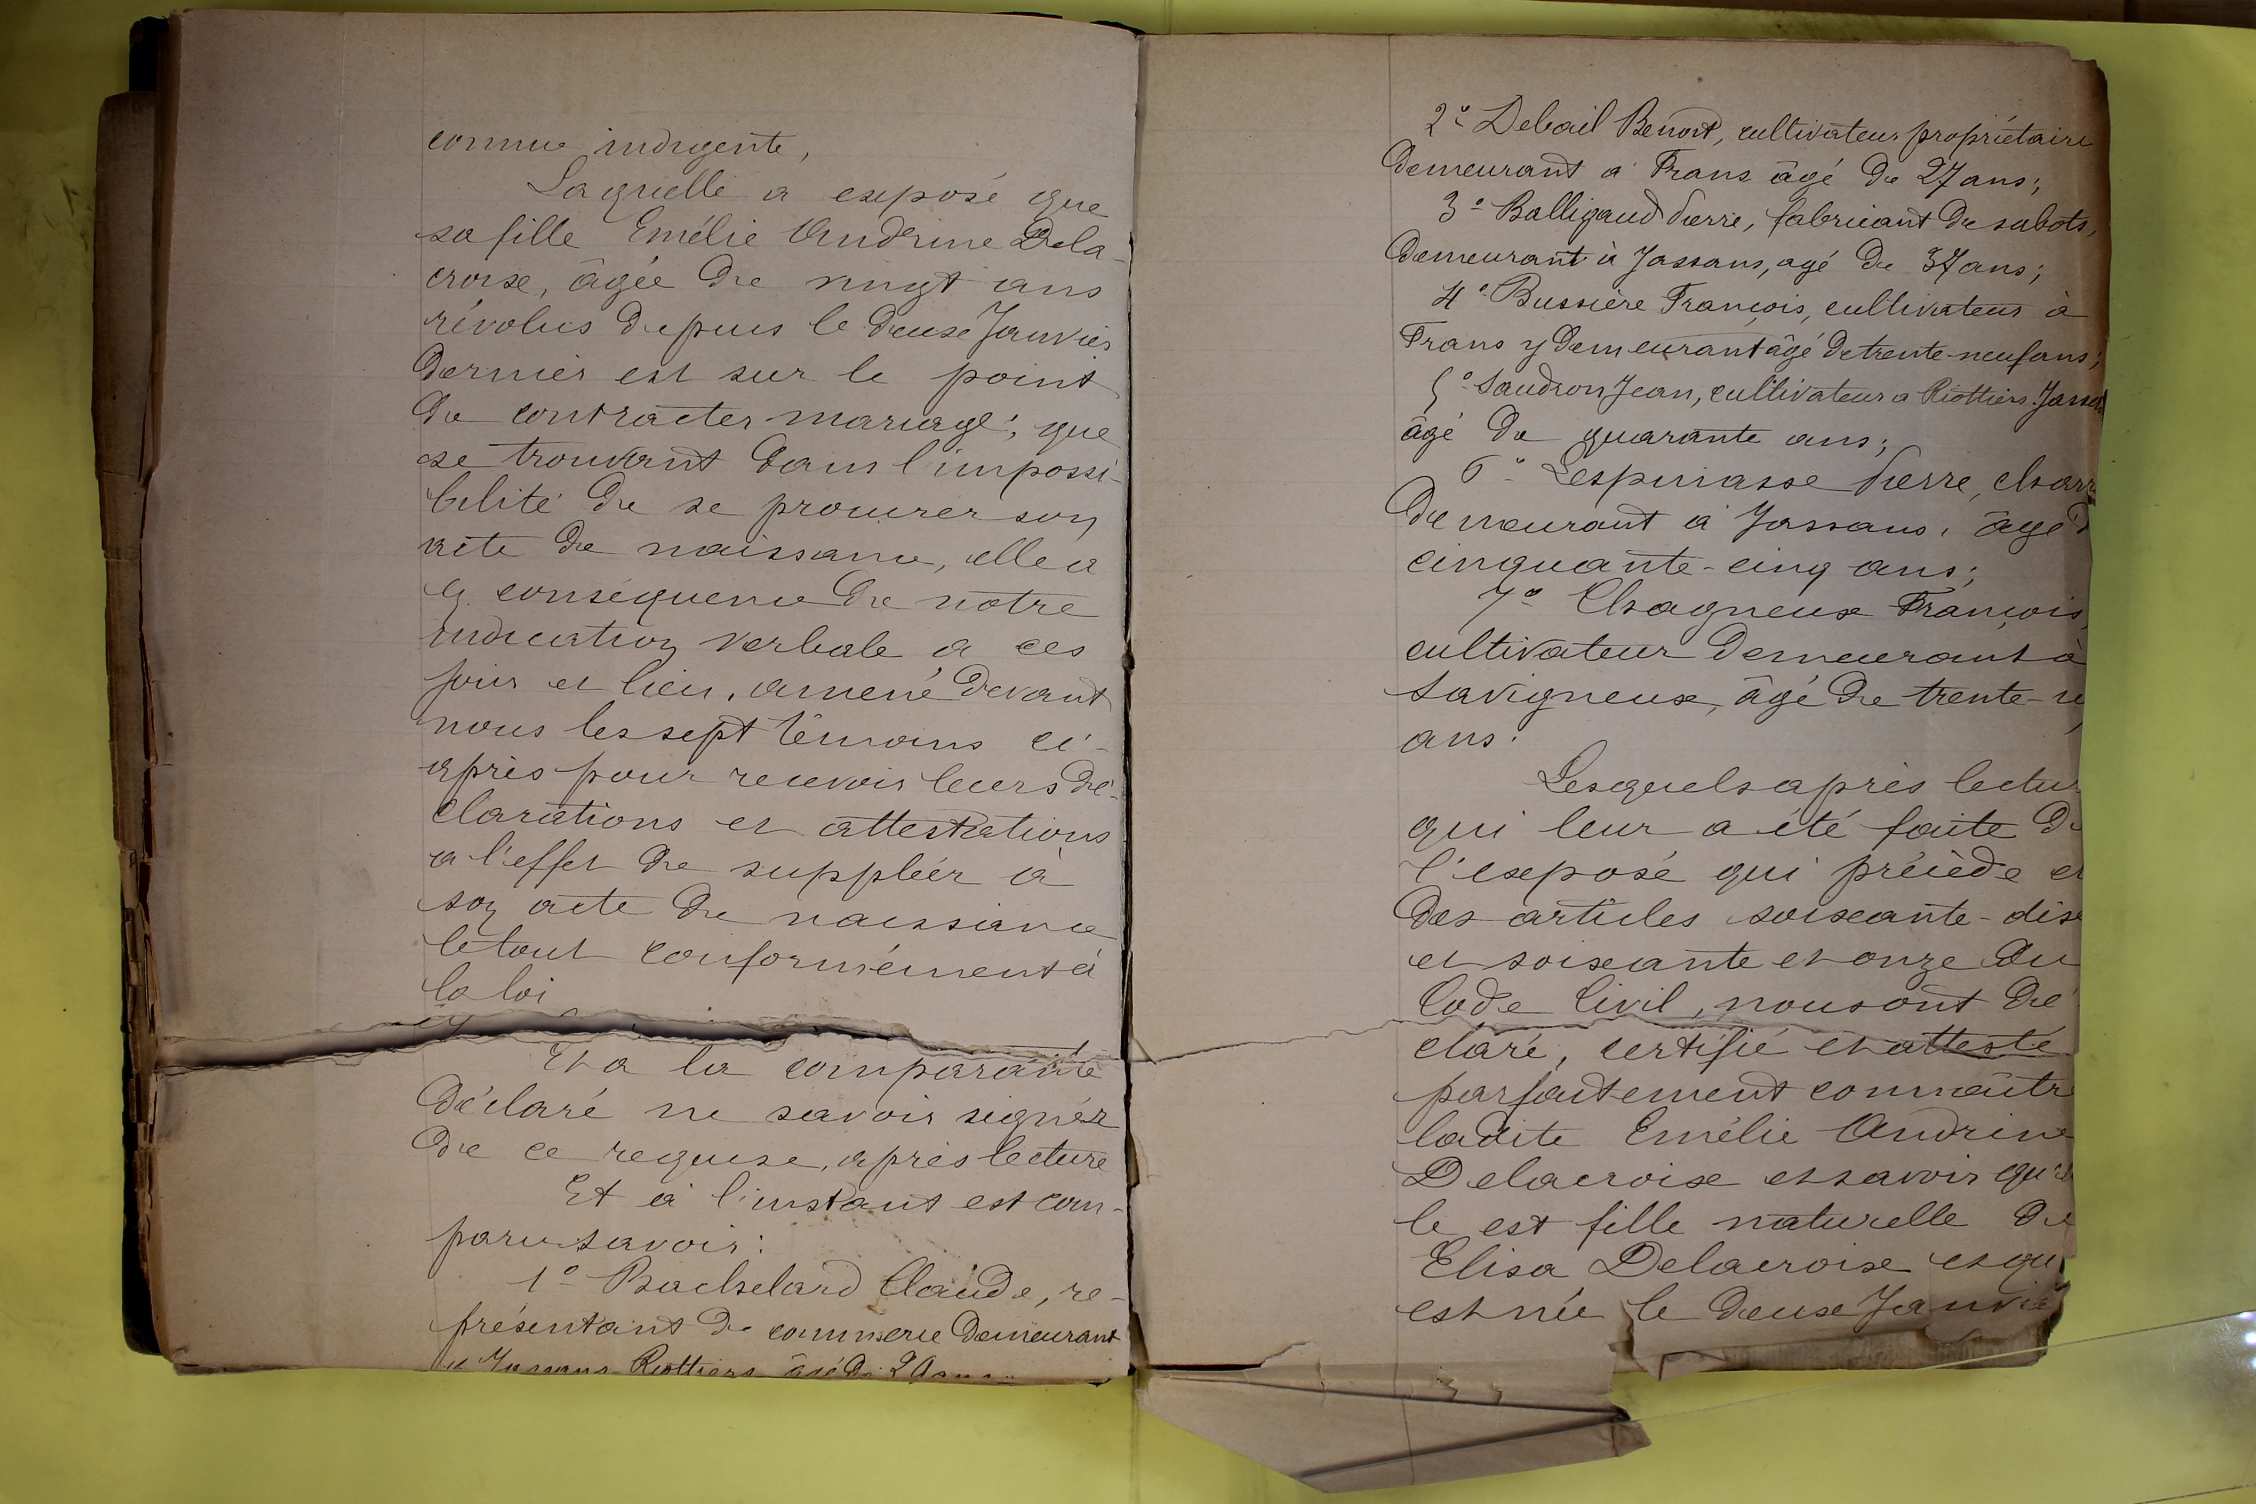 connue indigente,
Laquelle a exposé que
sa fille Emélie Andrine Dela-
croix, âgée de vingt ans
révolus depuis le deux Janvier
dernier est sur le point
de contracter mariage; que
se trouvant dans l'impossi-
bilité de se procurer son
acte de naissance, elle a
en conséquence de notre
indication verbale a ces
jour et lieu, amené devant
nous les sept témoins ci-
après pour recevoir leurs dé-
clarations et attestations
a l'effet de suppléer à
son acte de naissance
le tout conformément à
la loi
Et a la comparante
déclaré ne savoir signer
de ce requise, après lecture
Et à l'instant est com-
paru savoir:
1º Bachelard Claude, re-
présentant de commerce demeurant
à Jassans Riottiers âgé de
2º Debail Benoit, cultivateur propriétaire
demeurant à Frans âgé de 27 ans;
3º Balligand Pierre, fabricant de sabots,
demeurant à Jassans, agé de 37 ans;
4º Bussière François, cultivateur à
Frans y demeurant âgé de trente-neuf ans;
5º Saudron Jean, cultivateur a Riottiers Jassa
âgé de quarante ans;
6º Lespinasse Pierre, charr
demeurant à Jassans, âgé d
cinquante-cinq ans;
7º Chagneux François,
cultivateur demeurant à
Savigneux, âgé de trente-
ans.
Lesquels après lectur
qui leur a été faite de
l'exposé qui précède et
des articles soixante-dix
et soixante et onze du
Code Civil, nous ont dé
claré, certifié et attesté
parfaitement connaitre
ladite Emélie Andrine
Delacroix et savoir qu'el
le est fille naturelle de
Elisa Delacroix et qu
est née le deux Janvie